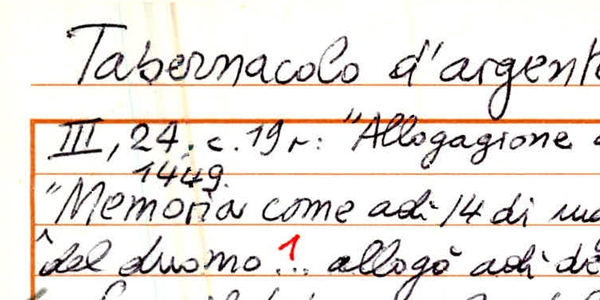 Tabernacolo d'argento
III, 24. c. 19 r: "Allogagione
1449.
"Memoria come adi 14 di
del duomo 1... allogò adì